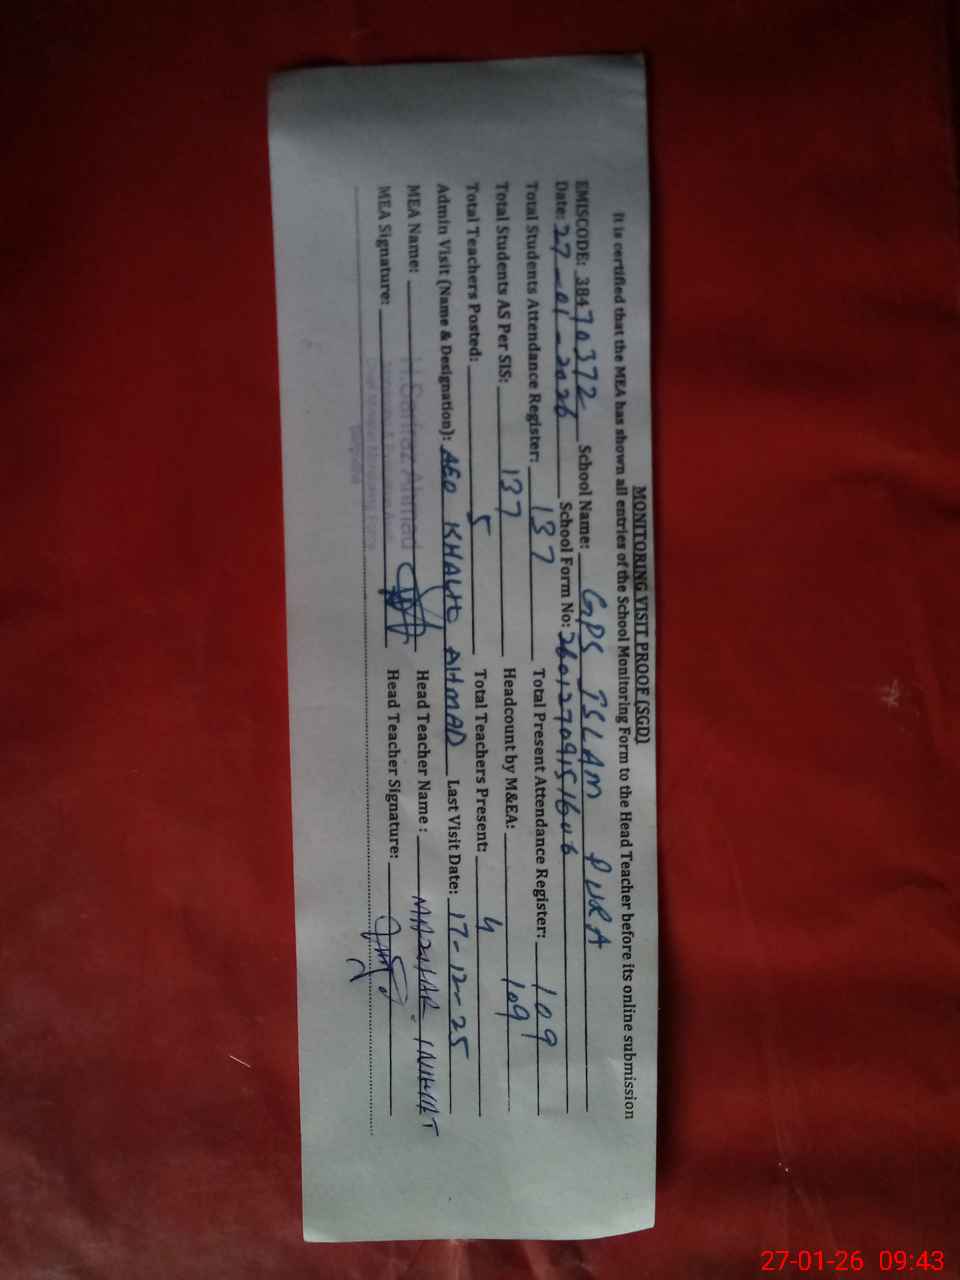 MONITORING VISIT PROOF (SGD)
It is certified that the MEA has shown all entries of the School Monitoring Form to the Head Teacher before its online submission
EMISCODE: 38470372 School Name: GPS ISLAM PURA
Date: 27-01-2026 School Form No:
Total Students Attendance Register: 137 Total Present Attendance Register: 109
Total Students AS Per SIS: 137 Headcount by M&EA: 109
Total Teachers Posted: 5 Total Teachers Present: 4
Admin Visit (Name & Designation): AEO KHALID AHMAD Last Visit Date: 17-12-25
MEA Name: Ahmad Head Teacher Name :
MEA Signature: Head Teacher Signature:
27-01-26 09:43